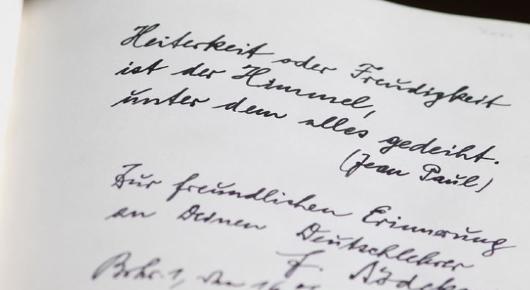 Heiterkeit oder Freudigkeit
ist der Himmel,
unter dem alles gedeiht.
(Jean Paul)
Zur freundlichen Erinnerung
an Deinen Deutschlehrer
F.
den